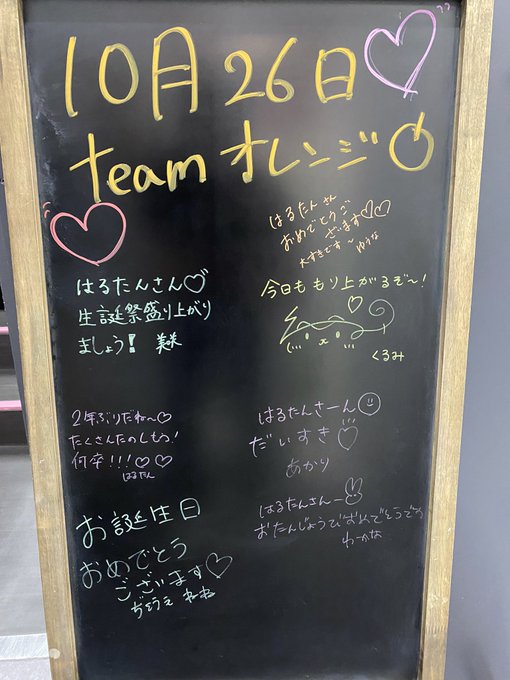 10月26日
teamオレンジ
はるたんさん
おめでとうご
ざいます♡♡
大すきです〜 ゆうな
はるたんさん♡
生誕祭盛り上がり
ましょう! 美咲
今日ももり上がるぞ〜!
くるみ
2年ぶりだね〜♡
たくさんたのしもう!
何卒!!!♡♡
はるたん
はるたんさーん
だいすき♡
あかり
お誕生日
おめでとう
ございます♡
ねね
はるたんさんー
おたんじょうびおめでとうです
わーかな